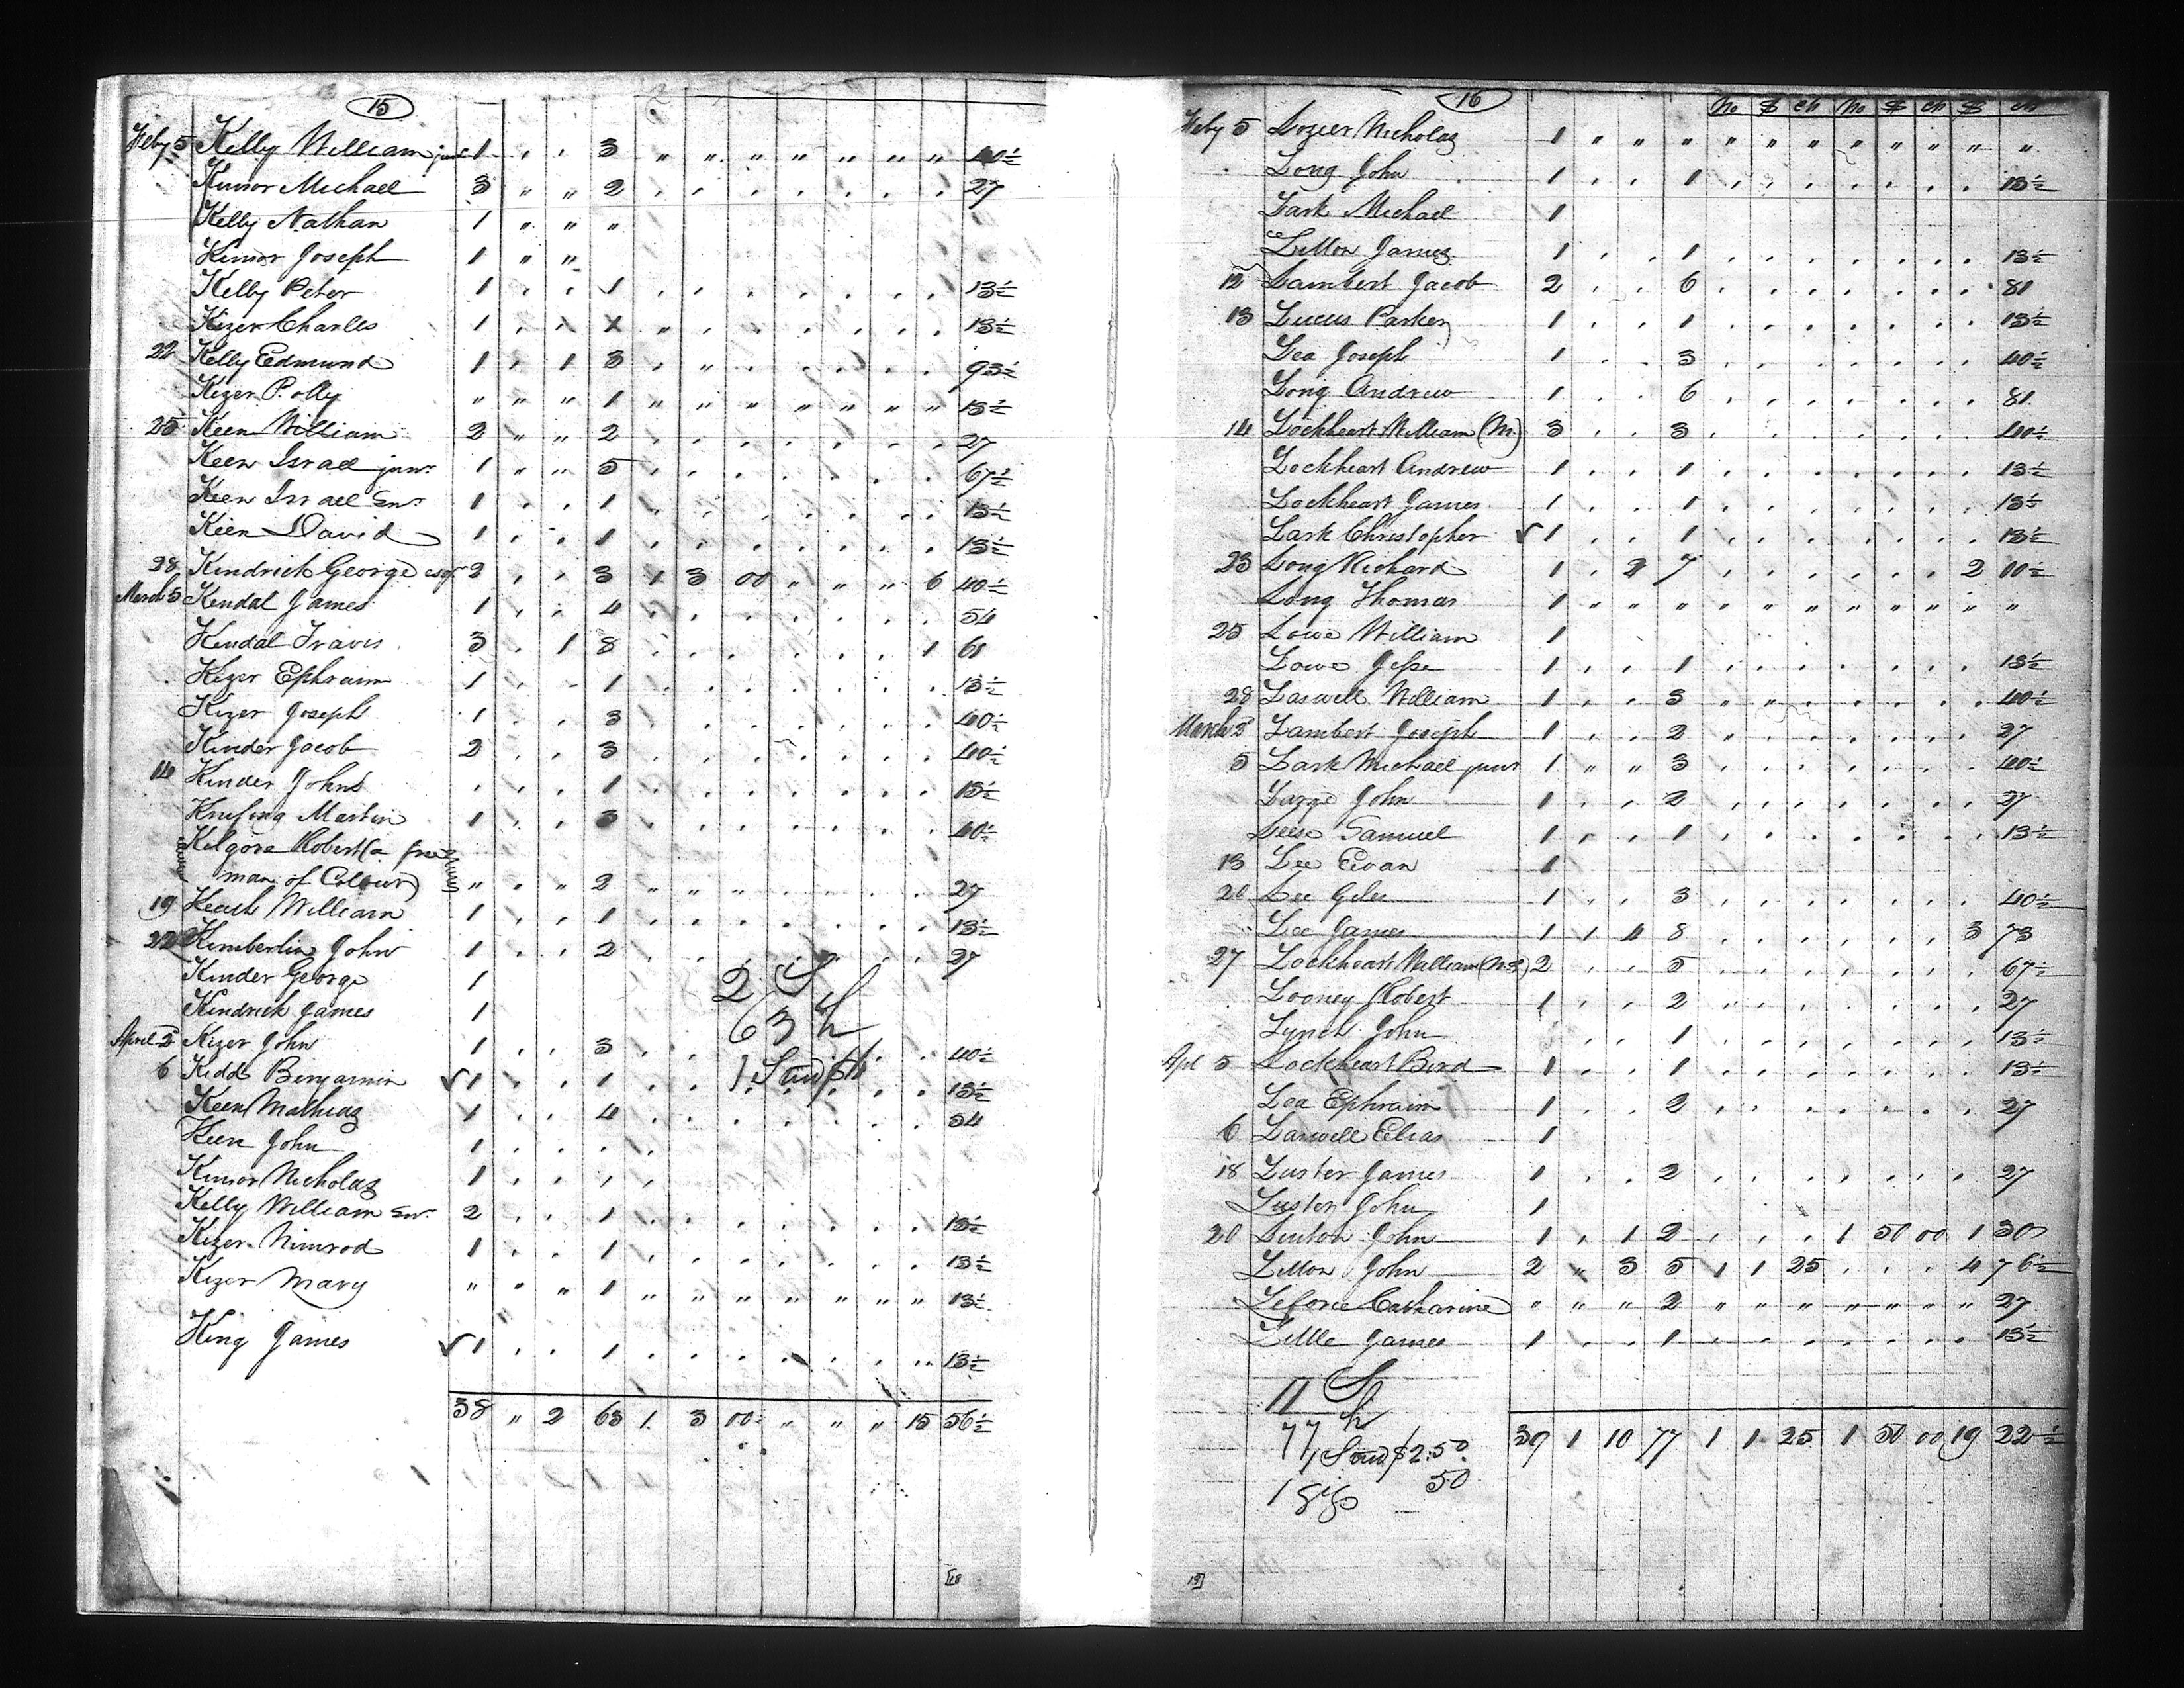 15
Feby 5 Kelly William junr 1 . . 3 " " " " " " " 40½
Kiser Michael 3 " " 2 . . . . . . . 27
Kelly Nathan 1 " " "
Joseph 1 " "
Kelly Peter 1 . . 1 . . . . . . . 13½
Kizer Charles 1 . . 1 " . . . . . . 13½
22 Kelly Edmund 1 . 1 3 . " . . . . . 93½
Kizer Polly " " " 1 " " " " " " " 13½
25 Keen William 2 " " 2 . . . . . . . 27
Keen Israel junr 1 " " 5 . . . . . . . 67½
Keen Israel Snr 1 . . 1 . . . . . . . 13½
Keen David 1 . . 1 . . . . . . . 13½
28 Kindrick George esqr 2 . . 3 1 3 00 " " " 6 40½
March 5 Kendal James 1 . . 4 . . . . . . . 54
Kendal Travis 3 . 1 8 . . . . . . 1 61
Kizer Ephraim 1 . . 1 . . . . . . . 13½
Kizer Joseph 1 . . 3 . . . . . . . 40½
Kinder Jacob 2 . . 3 . . . . . . . 40½
14 Kinder John . . . 1 . . . . . . . 13½
Martin 1 . . 3 . . . . . . . 40½
Kilgore Robert (a free
man of Colour) " " " 2 " " " . . . . 27
19 William 1 . . 1 . . . . . . . 13½
22 Kimberlin John 1 . . 2 . . . . . . . 27
Kinder George 1
2 S
Kindrick James 1
63 h
April 2 Kizer John 1 . . 3 . . . . . . . 40½
6 Kidd Benjamin √ 1 . . 1 . . 1 Stud . . . 13½
Keen Mathias 1 . . 4 . . . . . . . 54
Keen John 1 . . . .
Nicholas 1 . . . .
Kelly William Snr 2 . . 1 . . . . . . . 13½
Kizer Nimrod 1 . . 1 . . . . . . . 13½
Kizer Mary " " " 1 " " " " " " " 13½
King James √ 1 . . 1 . . . . . . . 13½
38 " 2 63 1 3 00 " " " 15 56½
18
16
No $ cts No $ cts $ cts
Feby 5 Lozier Nicholas 1 " " " " " " " " " " "
Long John 1 . . 1 . . . . . . . 13½
Lark Michael 1
Litton James 1 . . 1 . . . . . . . 13½
12 Lambert Jacob 2 . . 6 . . . . . . . 81
13 Lucus Parker 1 . . 1 . . . . . . . 13½
Lea Joseph 1 . . 3 . . . . . . . 40½
Long Andrew 1 . . 6 . . . . . . . 81
14 Lockheart William (M.) 3 . . 3 . . . . . . . 40½
Lockheart Andrew 1 . . 1 . . . . . . . 13½
Lockheart James 1 . . 1 . . . . . . . 13½
Lark Christopher √ 1 . . 1 . . . . . . . 13½
23 Long Richard 1 . 2 7 . . . . . . 2 00½
Long Thomas 1 " " " " " " " " " " "
25 Lowe William 1
Lowe Jesse 1 . . 1 . . . . . . . 13½
28 Laswell William 1 . . 3 . " . . . . . 40½
March 2 Lambert Joseph 1 . . 2 . . . . . . . 27
5 Lark Michael junr 1 " " 3 . . . . . . . 40½
Large John 1 . . 2 . . . . . . . 27
Leese Samuel 1 . . 1 . . . . . . . 13½
13 Lee Evan 1
20 Lee Giles 1 . . 3 . . . . . . . 40½
Lee James 1 1 4 8 . . . . . . 3 73
27 Lockheart William 2 . . 5 . . . . . . . 67½
Looney Robert 1 . . 2 . . . . . . . 27
Lynch John . . . 1 . . . . . . . 13½
Apl 5 Lockheart Bird 1 . . 1 . . . . . . . 13½
Lea Ephraim 1 . . 2 . . . . . . . 27
6 Laswell Elias 1
18 Luster James 1 . . 2 . . . . . . . 27
Luster John 1
20 Linton John 1 . 1 2 . . . 1 50 00 1 30
Litton John 2 " 3 5 1 1 25 . . . 4 76½
Leforce Catharine " " " 2 " " " " " " " 27
Little James 1 . . 1 . . . . . . . 13½
11 S
77 h
39 1 10 77 1 1 25 1 50 00 19 22½
1 Stud $2.50
1 50
19